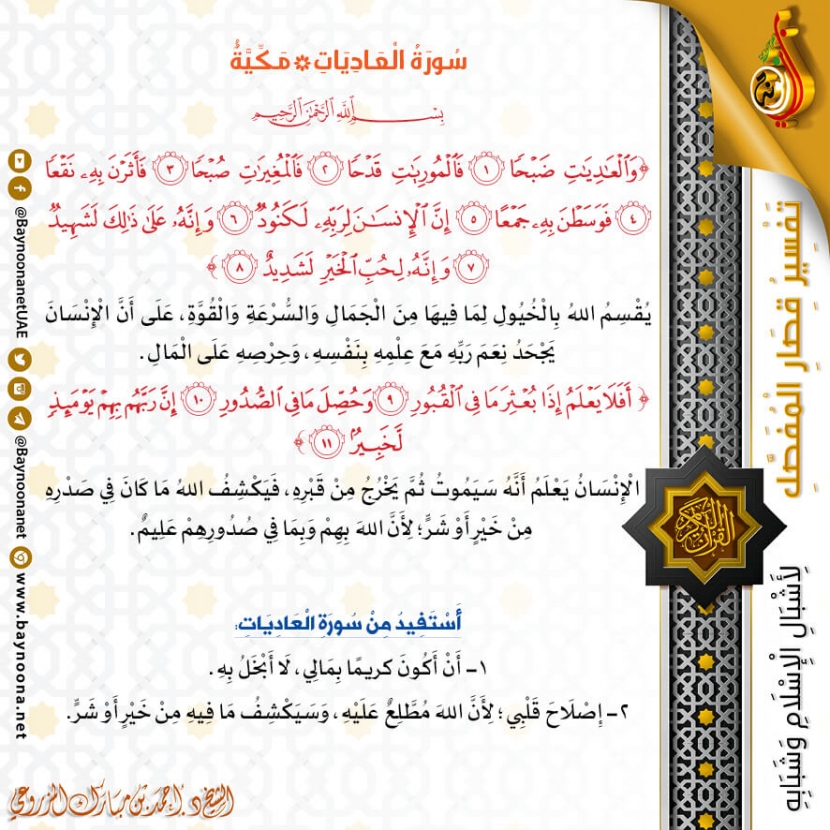 سُورَةُ الْعَادِيَاتِ * مَكِّيَّةٌ
بِسْمِ اللَّهِ الرَّحْمَٰنِ الرَّحِيمِ
﴿ وَالْعَادِيَاتِ ضَبْحًا ١ فَالْمُورِيَاتِ قَدْحًا ٢ فَالْمُغِيرَاتِ صُبْحًا ٣ فَأَثَرْنَ بِهِ نَقْعًا
٤ فَوَسَطْنَ بِهِ جَمْعًا ٥ إِنَّ الْإِنسَانَ لِرَبِّهِ لَكَنُودٌ ٦ وَإِنَّهُ عَلَىٰ ذَٰلِكَ لَشَهِيدٌ
٧ وَإِنَّهُ لِحُبِّ الْخَيْرِ لَشَدِيدٌ ٨ ﴾
يُقْسِمُ اللهُ بِالْخُيُولِ لِمَا فِيهَا مِنَ الْجَمَالِ وَالسُّرْعَةِ وَالْقُوَّةِ، عَلَى أَنَّ الْإِنْسَانَ
يَجْحَدُ نِعَمَ رَبِّهِ مَعَ عِلْمِهِ بِنَفْسِهِ، وَحِرْصِهِ عَلَى الْمَالِ.
﴿ أَفَلَا يَعْلَمُ إِذَا بُعْثِرَ مَا فِي الْقُبُورِ ٩ وَحُصِّلَ مَا فِي الصُّدُورِ ١٠ إِنَّ رَبَّهُم بِهِمْ يَوْمَئِذٍ
لَّخَبِيرٌ ١١ ﴾
الْإِنْسَانُ يَعْلَمُ أَنَّهُ سَيَمُوتُ ثُمَّ يَخْرُجُ مِنْ قَبْرِهِ، فَيَكْشِفُ اللهُ مَا كَانَ فِي صَدْرِهِ
مِنْ خَيْرٍ أَوْ شَرٍّ؛ لِأَنَّ اللهَ بِهِمْ وَبِمَا فِي صُدُورِهِمْ عَلِيمٌ.
أَسْتَفِيدُ مِنْ سُورَةِ الْعَادِيَاتِ:
١- أَنْ أَكُونَ كَرِيمًا بِمَالِي، لَا أَبْخَلُ بِهِ.
٢- إِصْلَاحَ قَلْبِي؛ لِأَنَّ اللهَ مُطَّلِعٌ عَلَيْهِ، وَسَيَكْشِفُ مَا فِيهِ مِنْ خَيْرٍ أَوْ شَرٍّ.
الشيخ د. أحمد بن مبارك المزروعي
تَفْسِيرُ قِصَارِ الْمُفَصَّلِ
لِأَشْبَالِ الْإِسْلَامِ وَشَبَابِهِ
القرآن الكريم
@BaynoonanetUAE
@Baynoonanet
www.baynoona.net